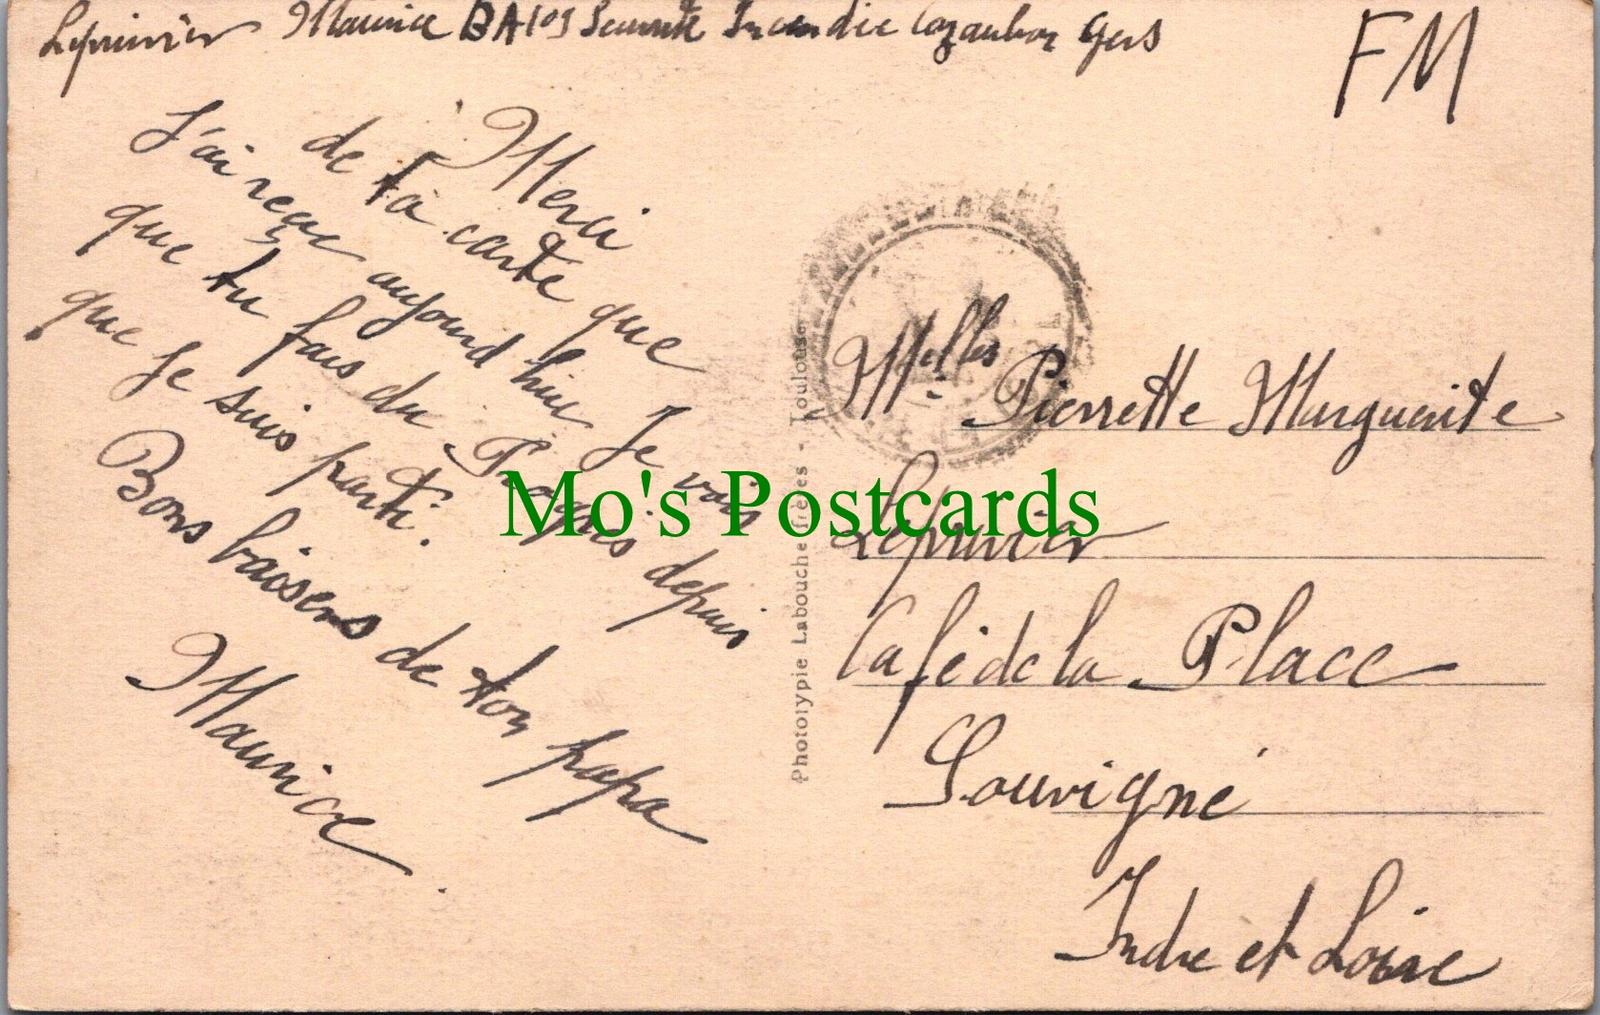 Leprivier Maurice BA 103 Securité Incendie Cazaubon Gers
FM
Merci
de ta carte que
J'ai reçue aujourd hui Je vois
que tu fais du Progrès depuis
que Je suis parti.
Bons baisers de ton papa
Maurice
Phototypie Labouche frères - Toulouse
Melles Pierrette Marguerite
Leprivier
Café de la Place
Souvigné
Indre et Loire
Mo's Postcards